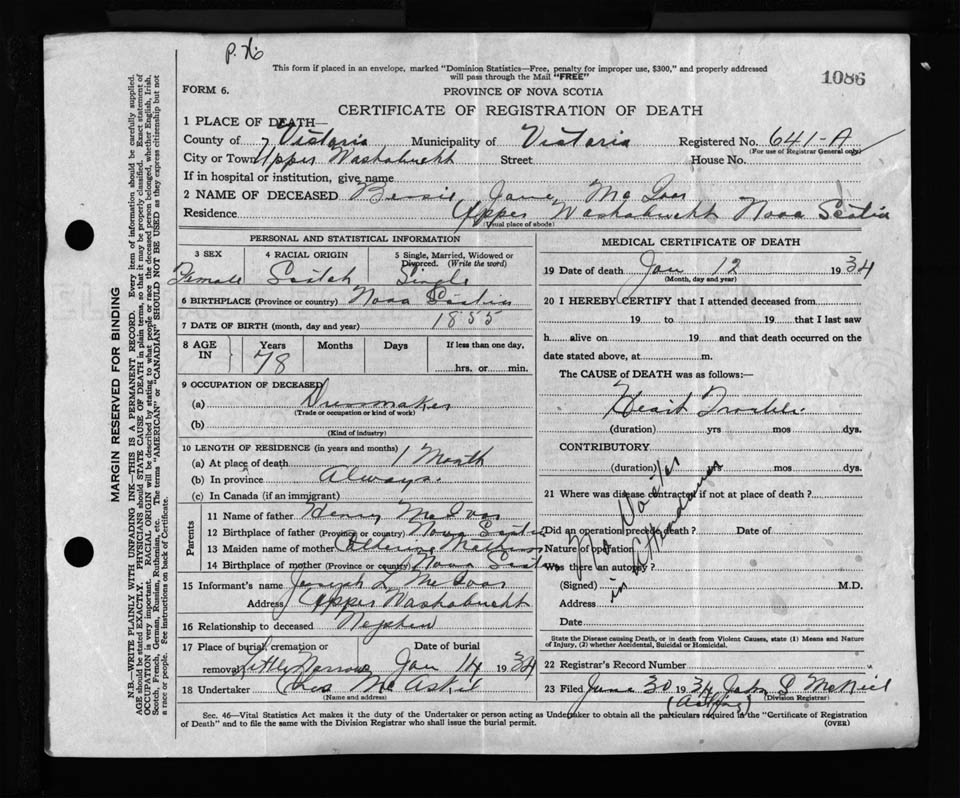 p. 76
This form if placed in an envelope, marked "Dominion Statistics—Free, penalty for improper use, $300," and properly addressed
will pass through the Mail "FREE"
1086
FORM 6.
PROVINCE OF NOVA SCOTIA
CERTIFICATE OF REGISTRATION OF DEATH
1 PLACE OF DEATH—
County of Victoria Municipality of Victoria Registered No. 641-A
(For use of Registrar General only)
City or Town Upper Washabuckt Street House No.
If in hospital or institution, give name
2 NAME OF DECEASED Bessie Jane McIvor
Residence Upper Washabuckt Nova Scotia
(Usual place of abode)
PERSONAL AND STATISTICAL INFORMATION
3 SEX 4 RACIAL ORIGIN 5 Single, Married, Widowed or
Divorced. (Write the word)
Female Scotch Single
6 BIRTHPLACE (Province or country) Nova Scotia
7 DATE OF BIRTH (month, day and year) 1855
8 AGE IN Years Months Days If less than one day,
78 hrs. or min.
9 OCCUPATION OF DECEASED
(a) Dressmaker
(Trade or occupation or kind of work)
(b)
(Kind of industry)
10 LENGTH OF RESIDENCE (in years and months)
(a) At place of death 1 Month
(b) In province Always.
(c) In Canada (if an immigrant)
Parents
11 Name of father Henry McIvor
12 Birthplace of father (Province or country) Nova Scotia
13 Maiden name of mother Catherine
14 Birthplace of mother (Province or country) Nova Scotia
15 Informant's name Joseph L McIvor
Address Upper Washabuckt
16 Relationship to deceased Nephew
17 Place of burial, cremation or removal Date of burial
Little Narrows Jan 14 1934
18 Undertaker McAskil
(Name and address)
MEDICAL CERTIFICATE OF DEATH
19 Date of death Jan 12 1934
(Month, day and year)
20 I HEREBY CERTIFY that I attended deceased from
19 to 19 that I last saw
h alive on 19 and that death occurred on the
date stated above, at m.
The CAUSE of DEATH was as follows:—
Heart Trouble.
(duration) yrs mos dys.
CONTRIBUTORY
(duration) yrs mos dys.
21 Where was disease contracted if not at place of death?
Did an operation precede death? Date of
Nature of operation
Was there an autopsy?
No Doctor
in Attendance
(Signed) M.D.
Address
Date
State the Disease causing Death, or in death from Violent Causes, state (1) Means and Nature
of Injury, (2) whether Accidental, Suicidal or Homicidal.
22 Registrar's Record Number
23 Filed June 30 1934 John S McNeil
(Acting) (Division Registrar)
Sec. 46—Vital Statistics Act makes it the duty of the Undertaker or person acting as Undertaker to obtain all the particulars required in the "Certificate of Registration
of Death" and to file the same with the Division Registrar who shall issue the burial permit. (OVER)
MARGIN RESERVED FOR BINDING
N.B.—WRITE PLAINLY WITH UNFADING INK—THIS IS A PERMANENT RECORD. Every item of information should be carefully supplied.
AGE should be stated EXACTLY. PHYSICIANS should STATE CAUSE OF DEATH in plain terms, so that it may be properly classified. Exact statement of
OCCUPATION is very important. RACIAL ORIGIN will be described by stating to what people or race the deceased person belonged, whether English, Irish,
Scotch, French, German, Russian, Ruthenian, etc. The terms "AMERICAN" or "CANADIAN" SHOULD NOT BE USED as they express citizenship but not
a race or people. Fee instructions on back of Certificate.